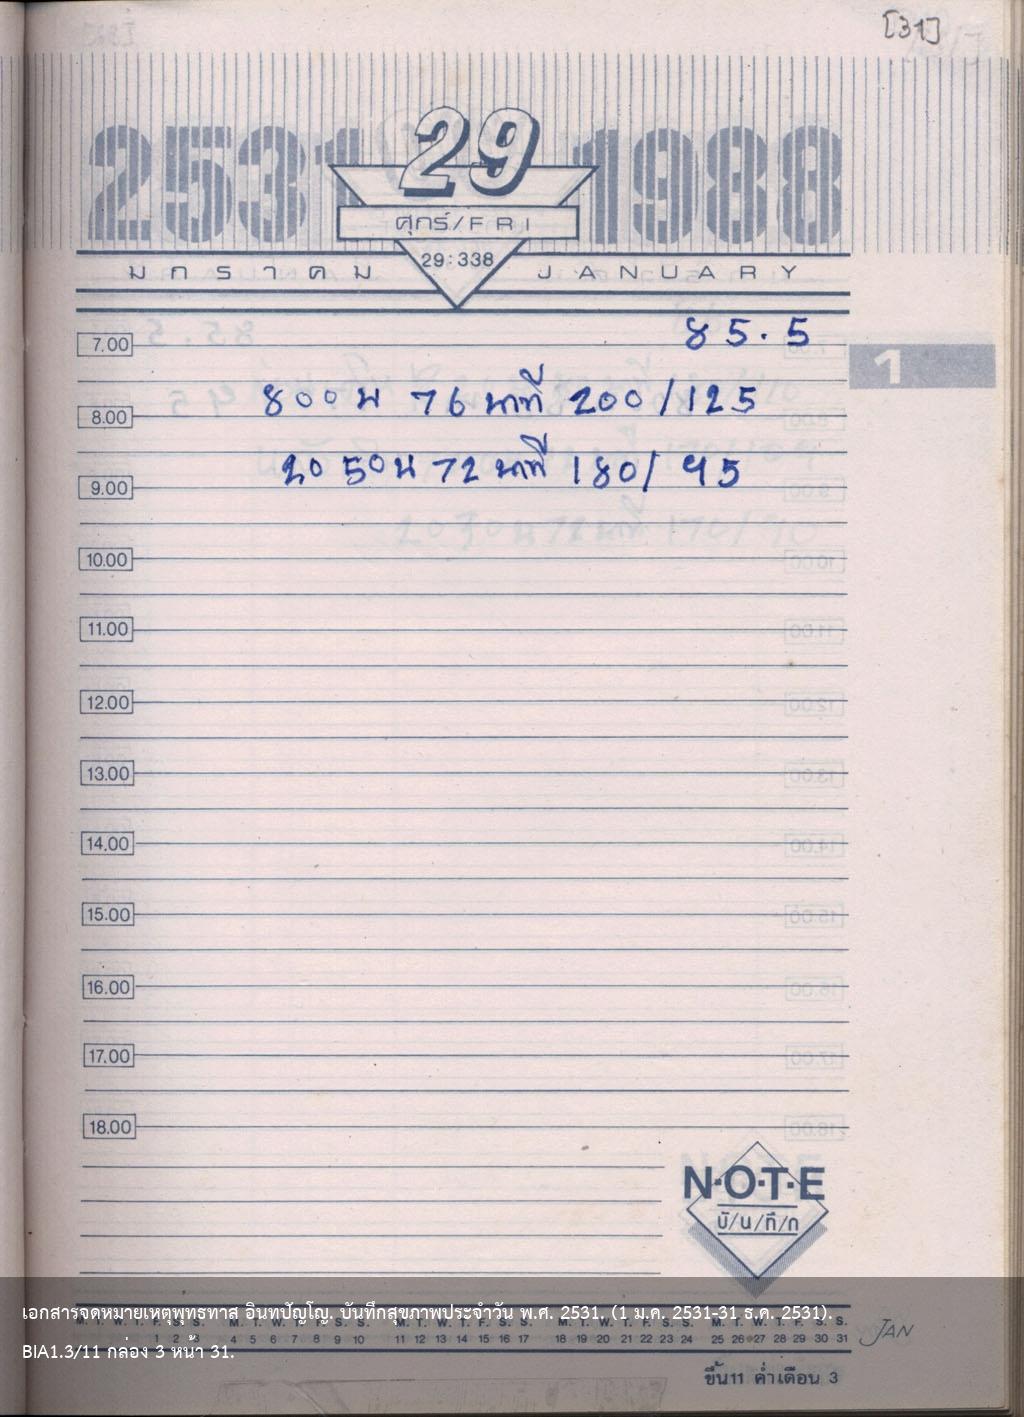 [31]
2531
29
1988
ศุกร์/FRI
29:338
มกราคม
JANUARY
85.5
7.00
1
800น 76 นาที 200/125
8.00
2050น 72 นาที 180/95
9.00
10.00
11.00
12.00
13.00
14.00
15.00
16.00
17.00
18.00
N·O·T·E
บั/น/ทึ/ก
เอกสารจดหมายเหตุพุทธทาส อินทปัญโญ. บันทึกสุขภาพประจำวัน พ.ศ. 2531. (1 ม.ค. 2531-31 ธ.ค. 2531).
M. T. W. T. F. S. S. M. T. W. T. F. S. S. M. T. W. T. F. S. S. M. T. W. T. F. S. S. M. T. W. T. F. S. S.
1 2 3 4 5 6 7 8 9 10 11 12 13 14 15 16 17 18 19 20 21 22 23 24 25 26 27 28 29 30 31 JAN
BIA1.3/11 กล่อง 3 หน้า 31.
ขึ้น11 ค่ำเดือน 3